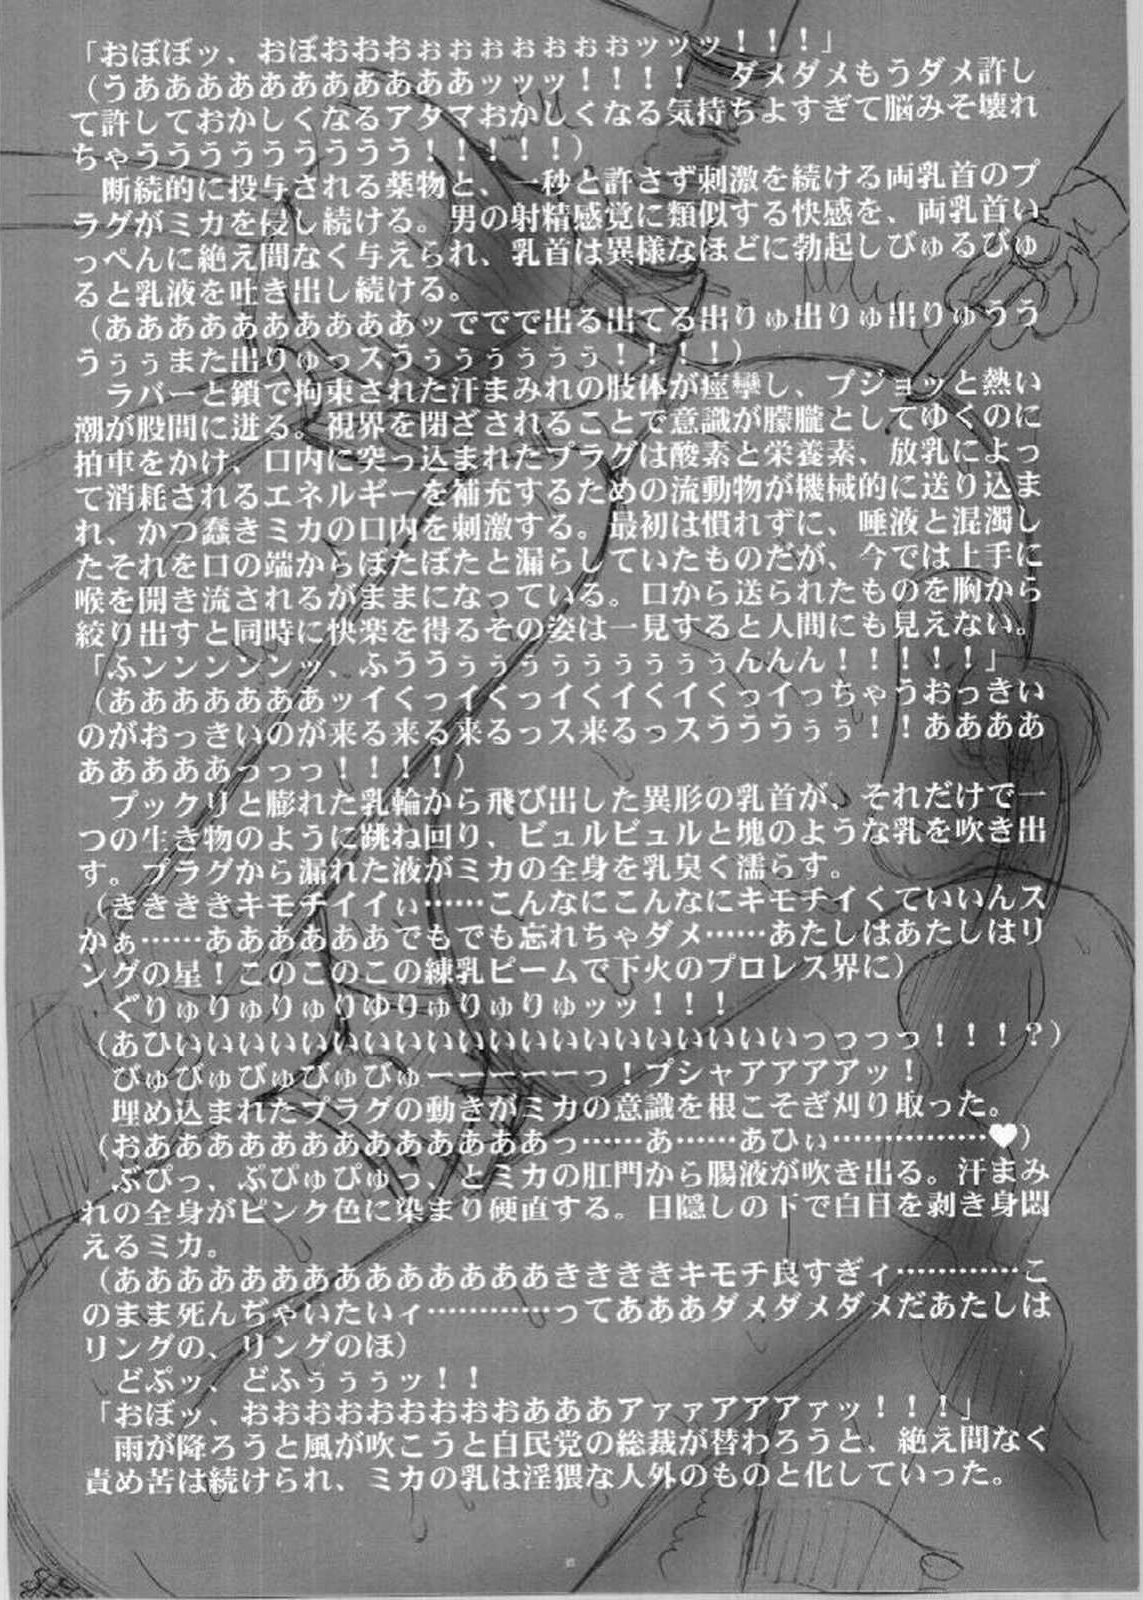 「おぼぼッ、おぼおおおぉぉぉぉぉぉぉッッッ！！！」
（うああああああああああああッッッ！！！！　ダメダメもうダメ許し
て許しておかしくなるアタマおかしくなる気持ちよすぎて脳みそ壊れ
ちゃうううううううう！！！！！）
断続的に投与される薬物と、一秒と許さず刺激を続ける両乳首のプ
ラグがミカを侵し続ける。男の射精感覚に類似する快感を、両乳首い
っぺんに絶え間なく与えられ、乳首は異様なほどに勃起しびゅるびゅ
ると乳液を吐き出し続ける。
（ああああああああああッででで出る出てる出りゅ出りゅ出りゅうう
うぅぅまた出りゅっスうぅぅぅぅぅぅ！！！！）
ラバーと鎖で拘束された汗まみれの肢体が痙攣し、プジョッと熱い
潮が股間に迸る。視界を閉ざされることで意識が朦朧としてゆくのに
拍車をかけ、口内に突っ込まれたプラグは酸素と栄養素、放乳によっ
て消耗されるエネルギーを補充するための流動物が機械的に送り込ま
れ、かつ蠢きミカの口内を刺激する。最初は慣れずに、唾液と混濁し
たそれを口の端からぼたぼたと漏らしていたものだが、今では上手に
喉を開き流されるがままになっている。口から送られたものを胸から
絞り出すと同時に快楽を得るその姿は一見すると人間にも見えない。
「ふンンンンンッ、ふううぅぅぅぅぅぅぅぅぅんんん！！！！！」
（あああああああッイくっイくっイくイくイくっイっちゃうおっきい
のがおっきいのが来る来る来るっス来るっスうううぅぅ！！ああああ
ああああああっっっ！！！！）
プックリと膨れた乳輪から飛び出した異形の乳首が、それだけで一
つの生き物のように跳ね回り、ビュルビュルと塊のような乳を吹き出
す。プラグから漏れた液がミカの全身を乳臭く濡らす。
（きききキモチイイぃ……こんなにこんなにキモチイくていいんス
かぁ……あああああああでもでも忘れちゃダメ……あたしはあたしはリ
ングの星！このこのこの練乳ビームで下火のプロレス界に）
ぐりゅりゅりゅりゆりゅりゅりゅッッ！！！
（あひいいいいいいいいいいいいいいいいいいいいっっっっ！！！？）
びゅびゅびゅびゅびゅーーーーーっ！プシャアアアアッ！
埋め込まれたプラグの動きがミカの意識を根こそぎ刈り取った。
（おああああああああああああああっ……あ……あひぃ……………♥）
ぶぴっ、ぷぴゅぴゅっ、とミカの肛門から腸液が吹き出る。汗まみ
れの全身がピンク色に染まり硬直する。目隠しの下で白目を剥き身悶
えるミカ。
（ああああああああああああああききききキモチ良すぎィ…………こ
のまま死んぢゃいたいィ…………ってあああダメダメダメだあたしは
リングの、リングのほ）
どぷッ、どふぅぅぅッ！！
「おぼッ、おおおおおおおおおあああアァァアアアァッ！！！」
雨が降ろうと風が吹こうと自民党の総裁が替わろうと、絶え間なく
責め苦は続けられ、ミカの乳は淫猥な人外のものと化していった。